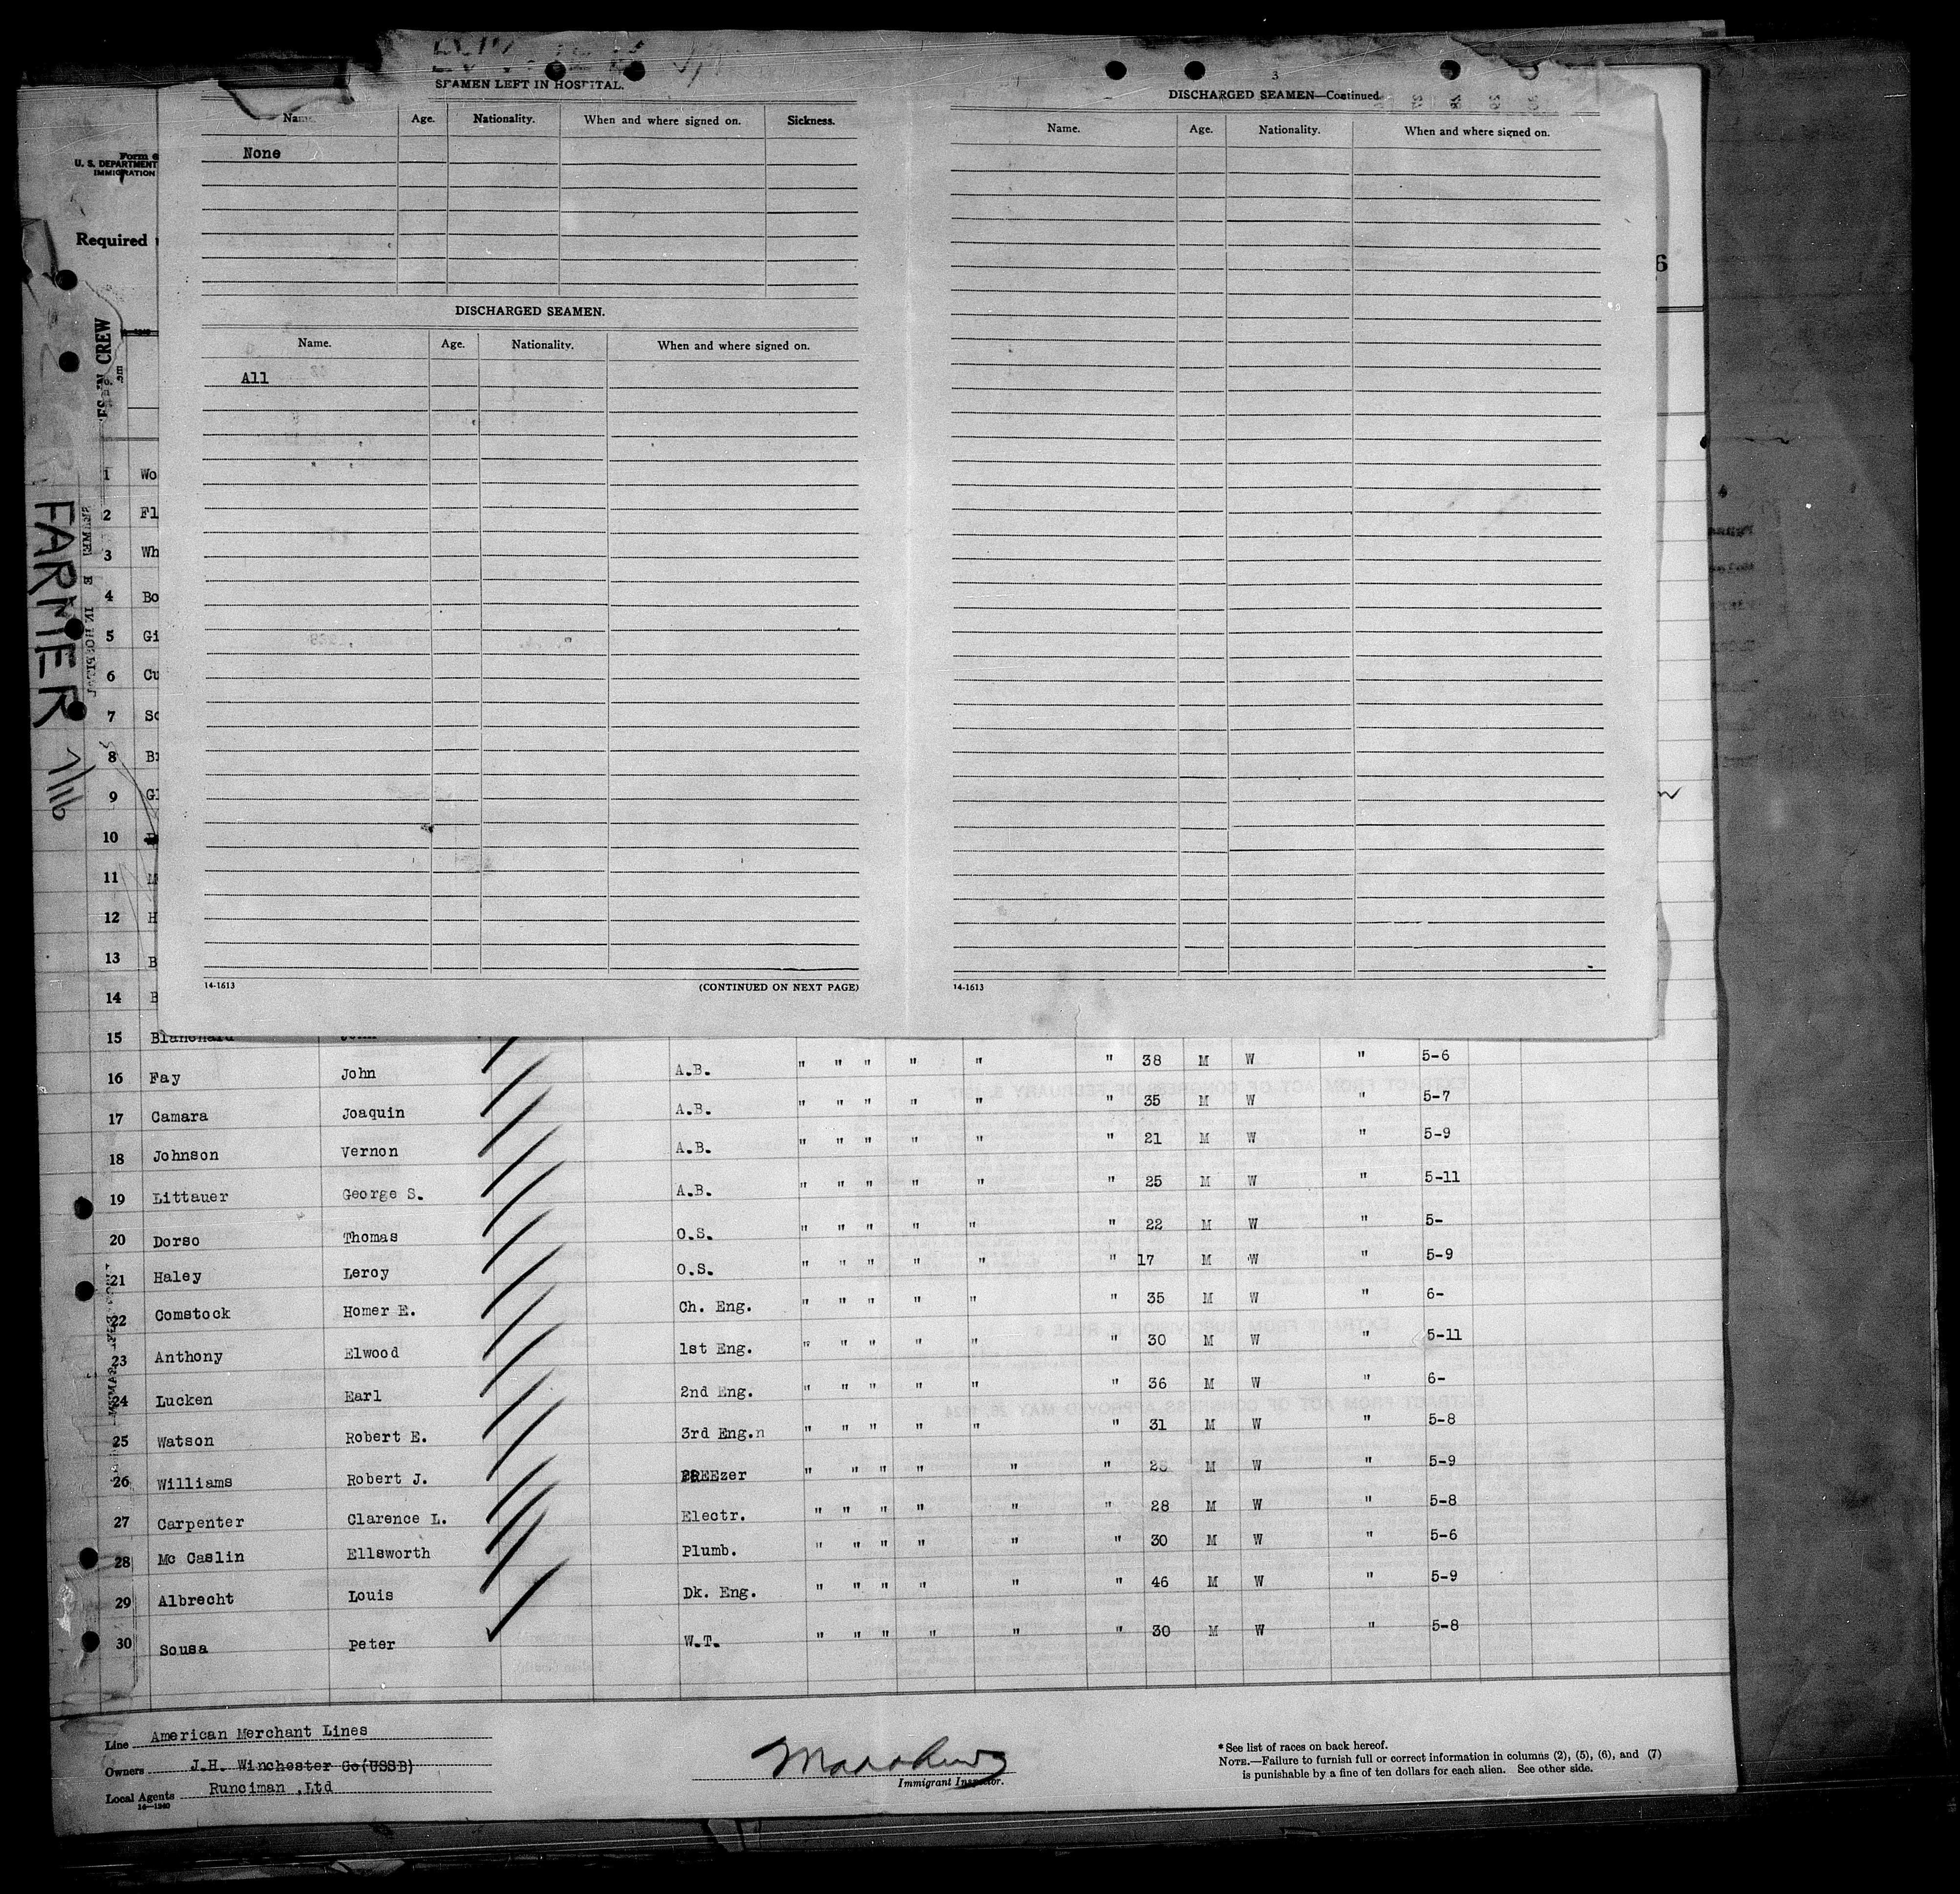 SEAMEN LEFT IN HOSPITAL.
Name. Age. Nationality. When and where signed on. Sickness.
None
DISCHARGED SEAMEN.
Name. Age. Nationality. When and where signed on.
All
14-1613 (CONTINUED ON NEXT PAGE)
3
DISCHARGED SEAMEN—Continued
Name. Age. Nationality. When and where signed on.
14-1613
U. S. DEPARTMENT
IMMIGRATION
Required
CREW
FARMER
6
1 Wo
2 Fl
3 Wh
4 Bo
5 Gi
6 Cu
7 Sc
8 Br
9 Gl
10
11 M
12 H
13 B
14 B
15 Blanchard John
16 Fay John A.B. " " " " " " 38 M W " 5-6
17 Camara Joaquin A.B. " " " " " " 35 M W " 5-7
18 Johnson Vernon A.B. " " " " " " 21 M W " 5-9
19 Littauer George S. A.B. " " " " " " 25 M W " 5-11
20 Dorso Thomas O.S. " " " " " " 22 M W " 5-
21 Haley Leroy O.S. " " " " " " 17 M W " 5-9
22 Comstock Homer E. Ch. Eng. " " " " " " 35 M W " 6-
23 Anthony Elwood 1st Eng. " " " " " " 30 M W " 5-11
24 Lucken Earl 2nd Eng. " " " " " " 36 M W " 6-
25 Watson Robert E. 3rd Eng.n " " " " " " 31 M W " 5-8
26 Williams Robert J. FREEzer " " " " " " M W " 5-9
27 Carpenter Clarence L. Electr. " " " " " " 28 M W " 5-8
28 Mc Caslin Ellsworth Plumb. " " " " " " 30 M W " 5-6
29 Albrecht Louis Dk. Eng. " " " " " " 46 M W " 5-9
30 Sousa Peter W.T. " " " " " " 30 M W " 5-8
Line American Merchant Lines
Owners J.H. Winchester Co(USSB)
Local Agents Runciman ,Ltd
14—1240
Immigrant Inspector.
* See list of races on back hereof.
NOTE.—Failure to furnish full or correct information in columns (2), (5), (6), and (7)
is punishable by a fine of ten dollars for each alien. See other side.